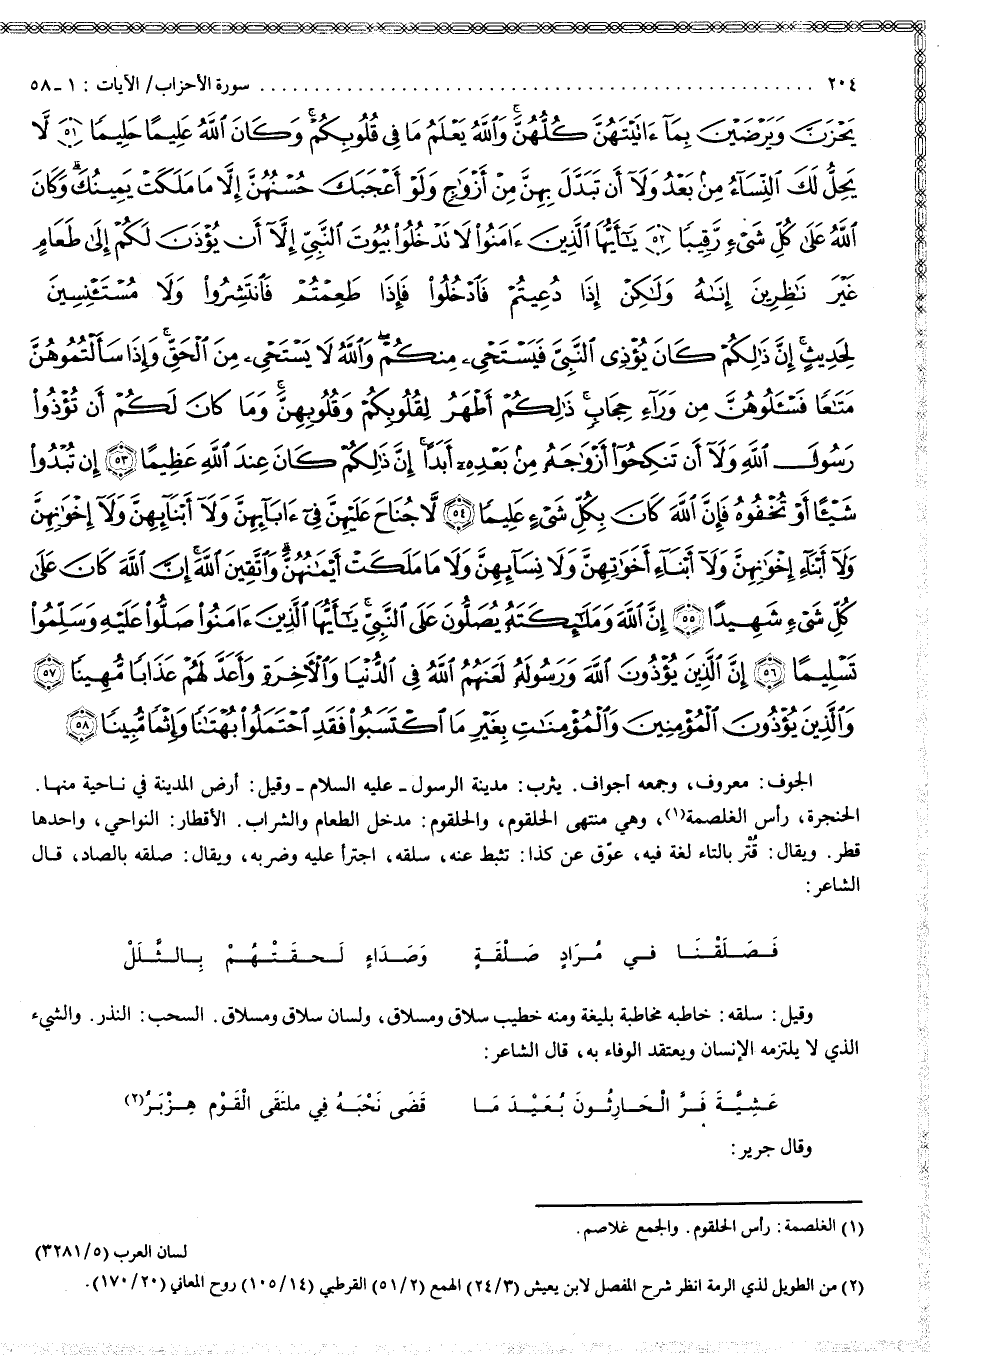 ٢٠٤ ................................ سورة الأحزاب/ الآيات : ١ ـ ٥٨
يَحْزَنَّ وَيَرْضَيْنَ بِمَآ ءَانَيْتَهُنَّ كُلُّهُنَّ وَاللَّهُ يَعْلَمُ مَا فِى قُلُوبِكُمْ وَكَانَ اللَّهُ عَلِيمًا حَلِيمًا ٥١ لَّا
يَحِلُّ لَكَ النِّسَآءُ مِنْ بَعْدُ وَلَآ أَن تَبَدَّلَ بِهِنَّ مِنْ أَزْوَاجٍ وَلَوْ أَعْجَبَكَ حُسْنُهُنَّ إِلَّا مَا مَلَكَتْ يَمِينُكَ وَكَانَ
اللَّهُ عَلَى كُلِّ شَىْءٍ رَّقِيبًا ٥٢ يَٰٓأَيُّهَا الَّذِينَ ءَامَنُوا۟ لَا تَدْخُلُوا۟ بُيُوتَ النَّبِىِّ إِلَّآ أَن يُؤْذَنَ لَكُمْ إِلَى طَعَامٍ
غَيْرَ نَاظِرِينَ إِنَىٰهُ وَلَٰكِنْ إِذَا دُعِيتُمْ فَٱدْخُلُوا۟ فَإِذَا طَعِمْتُمْ فَٱنتَشِرُوا۟ وَلَا مُسْتَـْٔنِسِينَ
لِحَدِيثٍ إِنَّ ذَٰلِكُمْ كَانَ يُؤْذِى النَّبِىَّ فَيَسْتَحْىِۦ مِنكُمْ وَاللَّهُ لَا يَسْتَحْىِۦ مِنَ الْحَقِّ وَإِذَا سَأَلْتُمُوهُنَّ
مَتَٰعًا فَسْـَٔلُوهُنَّ مِن وَرَآءِ حِجَابٍ ذَٰلِكُمْ أَطْهَرُ لِقُلُوبِكُمْ وَقُلُوبِهِنَّ وَمَا كَانَ لَكُمْ أَن تُؤْذُوا۟
رَسُولَ اللَّهِ وَلَآ أَن تَنكِحُوٓا۟ أَزْوَٰجَهُۥ مِنْ بَعْدِهِۦٓ أَبَدًا إِنَّ ذَٰلِكُمْ كَانَ عِندَ اللَّهِ عَظِيمًا ٥٣ إِن تُبْدُوا۟
شَيْـًٔا أَوْ تُخْفُوهُ فَإِنَّ اللَّهَ كَانَ بِكُلِّ شَىْءٍ عَلِيمًا ٥٤ لَّا جُنَاحَ عَلَيْهِنَّ فِىٓ ءَابَآئِهِنَّ وَلَآ أَبْنَآئِهِنَّ وَلَآ إِخْوَٰنِهِنَّ
وَلَآ أَبْنَآءِ إِخْوَٰنِهِنَّ وَلَآ أَبْنَآءِ أَخَوَٰتِهِنَّ وَلَا نِسَآئِهِنَّ وَلَا مَا مَلَكَتْ أَيْمَٰنُهُنَّ وَٱتَّقِينَ اللَّهَ إِنَّ اللَّهَ كَانَ عَلَى
كُلِّ شَىْءٍ شَهِيدًا ٥٥ إِنَّ اللَّهَ وَمَلَٰٓئِكَتَهُۥ يُصَلُّونَ عَلَى النَّبِىِّ يَٰٓأَيُّهَا الَّذِينَ ءَامَنُوا۟ صَلُّوا۟ عَلَيْهِ وَسَلِّمُوا۟
تَسْلِيمًا ٥٦ إِنَّ الَّذِينَ يُؤْذُونَ اللَّهَ وَرَسُولَهُۥ لَعَنَهُمُ اللَّهُ فِى الدُّنْيَا وَالْأَخِرَةِ وَأَعَدَّ لَهُمْ عَذَابًا مُّهِينًا ٥٧
وَالَّذِينَ يُؤْذُونَ الْمُؤْمِنِينَ وَالْمُؤْمِنَٰتِ بِغَيْرِ مَا اكْتَسَبُوا۟ فَقَدِ احْتَمَلُوا۟ بُهْتَٰنًا وَإِثْمًا مُّبِينًا ٥٨
الجوف: معروف، وجمعه أجواف. يثرب: مدينة الرسول ـ عليه السلام ـ وقيل: أرض المدينة في ناحية منها.
الحنجرة، رأس الغلصمة(١)، وهي منتهى الحلقوم، والحلقوم: مدخل الطعام والشراب. الأقطار: النواحي، واحدها
قطر. ويقال: قُتْر بالتاء لغة فيه، عوّق عن كذا: تثبط عنه، سلقه، اجترأ عليه وضربه، ويقال: صلقه بالصاد، قال
الشاعر:
فَصَلَقْنَا في مُرَادٍ صَلْقَةٍ وَصَدَاءٍ لَحقَتْهُمْ بِالثَّلَلْ
وقيل: سلقه: خاطبه مخاطبة بليغة ومنه خطيب سلاق ومسلاق، ولسان سلاق ومسلاق. السحب: النذر. والشيء
الذي لا يلتزمه الإنسان ويعتقد الوفاء به، قال الشاعر:
عَشِيَّةَ فَرَّ الْحَارِثُونَ بُعَيْدَ مَا قَضَى نَحْبَهُ فِي ملتَقَى الْقَوْم هِزْبَرُ(٢)
وقال جرير:
(١) الغلصمة: رأس الحلقوم. والجمع غلاصم.
لسان العرب (٣٢٨١/٥)
(٢) من الطويل لذي الرمة انظر شرح المفصل لابن يعيش (٢٤/٣) الهمع (٥١/٢) القرطبي (١٠٥/١٤) روح المعاني (١٧٠/٢٠).